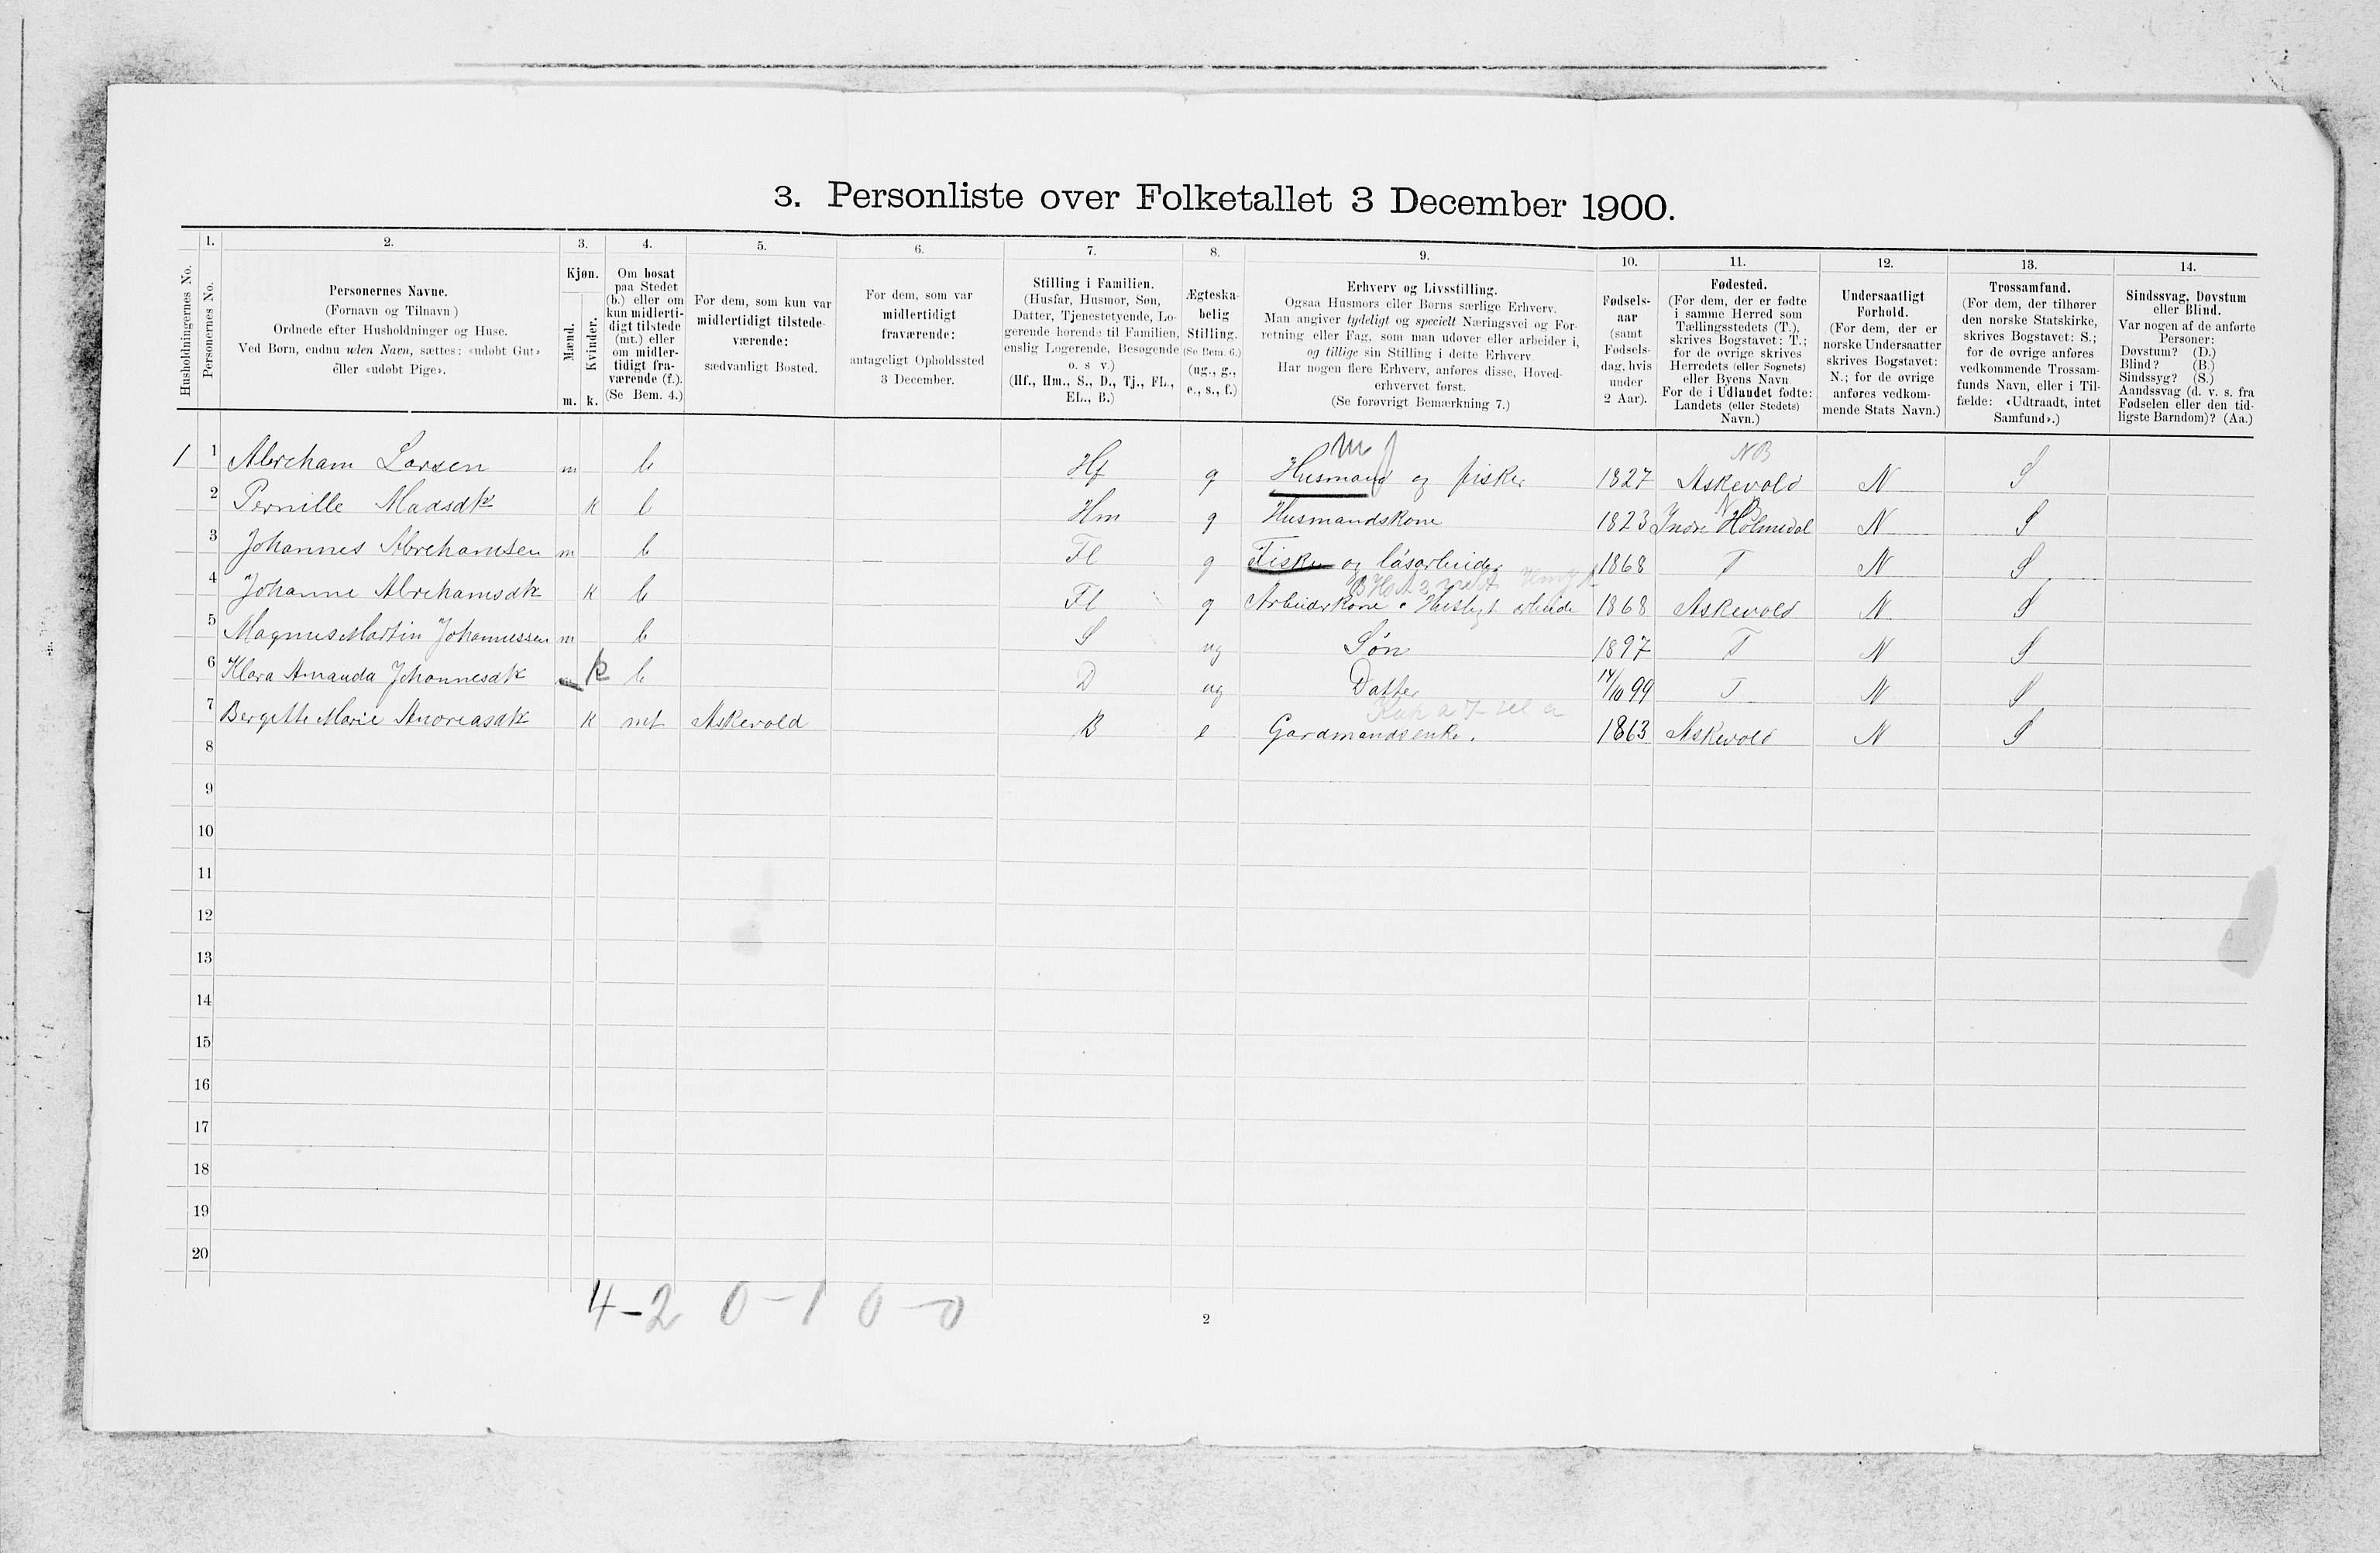 3. Personliste over Folketallet 3 December 1900.
1. 2. 3. 4. 5. 6. 7. 8. 9. 10. 11. 12. 13. 14.
Husholdningernes No.
Personernes No.
Personernes Navne.
(Fornavn og Tilnavn)
Ordnede efter Husholdninger og Huse.
Ved Børn, endnu uden Navn, sættes: «udøbt Gut»
eller «udøbt Pige».
Kjøn.
Mænd.
Kvinder.
m. k.
Om bosat
paa Stedet
(b.) eller om
kun midlerti-
digt tilstede
(mt.) eller
om midler-
tidigt fra-
værende (f.).
(Se Bem. 4.)
For dem, som kun var
midlertidigt tilstede-
værende:
sædvanligt Bosted.
For dem, som var
midlertidigt
fraværende:
antageligt Opholdssted
3 December.
Stilling i Familien.
(Husfar, Husmor, Søn,
Datter, Tjenestetyende, Lo-
gerende hørende til Familien,
enslig Logerende, Besøgende
o. s. v.)
(Hf., Hm., S., D., Tj., FL.,
EL., B.)
Ægteska-
belig
Stilling.
(Se Bem. 6.)
(ug., g.,
e., s., f.)
Erhverv og Livsstilling.
Ogsaa Husmors eller Børns særlige Erhverv.
Man angiver tydeligt og specielt Næringsvei og For-
retning eller Fag, som man udøver eller arbeider i,
og tillige sin Stilling i dette Erhverv.
Har nogen flere Erhverv, anføres disse, Hoved-
erhvervet først.
(Se forøvrigt Bemærkning 7.)
Fødsels-
aar
(samt
Fødsels-
dag, hvis
under
2 Aar).
Fødested.
(For dem, der er fødte
i samme Herred som
Tællingsstedets (T.),
skrives Bogstavet: T.;
for de øvrige skrives
Herredets (eller Sognets)
eller Byens Navn.
For de i Udlandet fødte:
Landets (eller Stedets)
Navn.)
Undersaatligt
Forhold.
(For dem, der er
norske Undersaatter
skrives Bogstavet:
N.; for de øvrige
anføres vedkom-
mende Stats Navn.)
Trossamfund.
(For dem, der tilhører
den norske Statskirke,
skrives Bogstavet: S.;
for de øvrige anføres
vedkommende Trossam-
funds Navn, eller i Til-
fælde: «Udtraadt, intet
Samfund».)
Sindssvag, Døvstum
eller Blind.
Var nogen af de anførte
Personer:
Døvstum? (D.)
Blind? (B.)
Sindssyg? (S.)
Aandssvag (d. v. s. fra
Fødselen eller den tid-
ligste Barndom)? (Aa.)
m f NB
1 1 Abreham Larsen m b Hf g Husmand og fisker 1827 Askevold N S
NB
2 Pernille Madsdk k b Hm g Husmandskone 1823 Indre Holmedal N S
3 Johannes Abrehamsen m b Fl g Fisker og låsarbeider 1868 T N S
4 Johanne Abrehamsdk k b Fl g Arbeidskone Husligt arbeide 1868 Askevold N S
5 Magnus Martin Johannessen m b S ug Søn 1897 T N S
6 Klara Amanda Johannesdk k b D ug Datter 14/10 99 T N S
7 Bergitte Marie Andreasdk k mt Askevold B e Gardmandsenke. 1863 Askevold N S
8
9
10
11
12
13
14
15
16
17
18
19
20
4-2 0-1 0-0
2